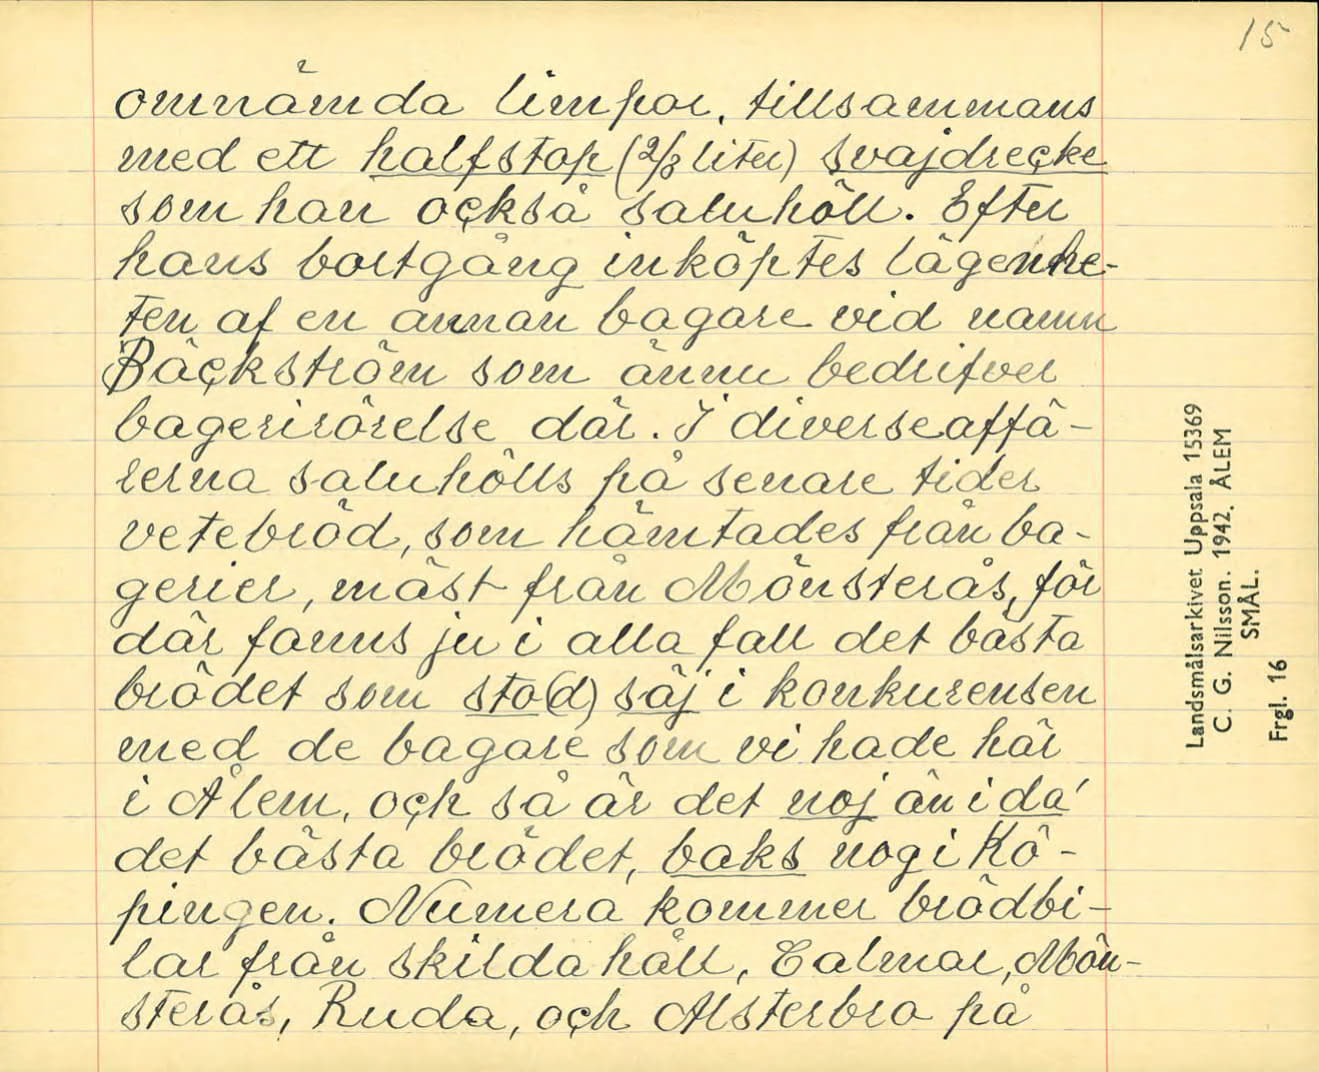 15
omnämda limpor, tillsammans
med ett halfstop (2/3 liter) svajdrecke
som han också saluhöll. Efter
hans bortgång inköptes lägenhe-
ten af en annan bagare vid namn
Bäckström som ännu bedrifver
bagerirörelse där. I diverseaffä-
rerna saluhölls på senare tider
vetebröd, som hämtades från ba-
gerier, mäst från Mönsterås, för
där fanns ju i alla fall det bästa
brödet som sto(d) säj i konkurensen
med de bagare som vi hade här
i Ålem, och så är det noj än i da'
det bästa brödet, baks nog i Kö-
pingen. Numera kommer brödbi-
lar från skilda håll, Calmar, Mön-
sterås, Ruda, och Alsterbro på
Landsmålsarkivet Uppsala 15369
C. G. Nilsson. 1942. ÅLEM
SMÅL.
Frgl. 16